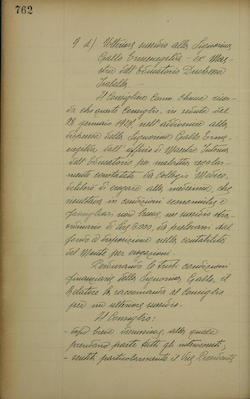 762
9 d) Ulteriore sussidio alla Signorina
Gallo Ermenegilda - ex Mae-
stra dell'Educatorio Duchessa
Isabella. -
Il Consigliere Comm. chiusa ricor-
da che questo Consiglio, in seduta del
28 gennaio 1928, nell'addivenire alla
dispensa della Signorina Gallo Erme-
negilda dall'ufficio di Maestra Interna
dell'Educatorio per malattia regolar-
mente constatata da Collegio Medico,
deliberò di erogare alla medesima, che
risultava in condizioni economiche e
famigliari non buone, un sussidio stra-
ordinario di Lire 6.000, da prelevarsi dal
fondo a disposizione nella contabilità
del Monte per erogazioni.
Perdurando le tristi condizioni
finanziarie della Signorina Gallo, il
Relatore raccomanda al Consiglio
per un ulteriore sussidio.
Il Consiglio:
- dopo breve discussione, alla quale
prendono parte tutti gli intervenuti;
- sentito particolarmente il Vice Presidente